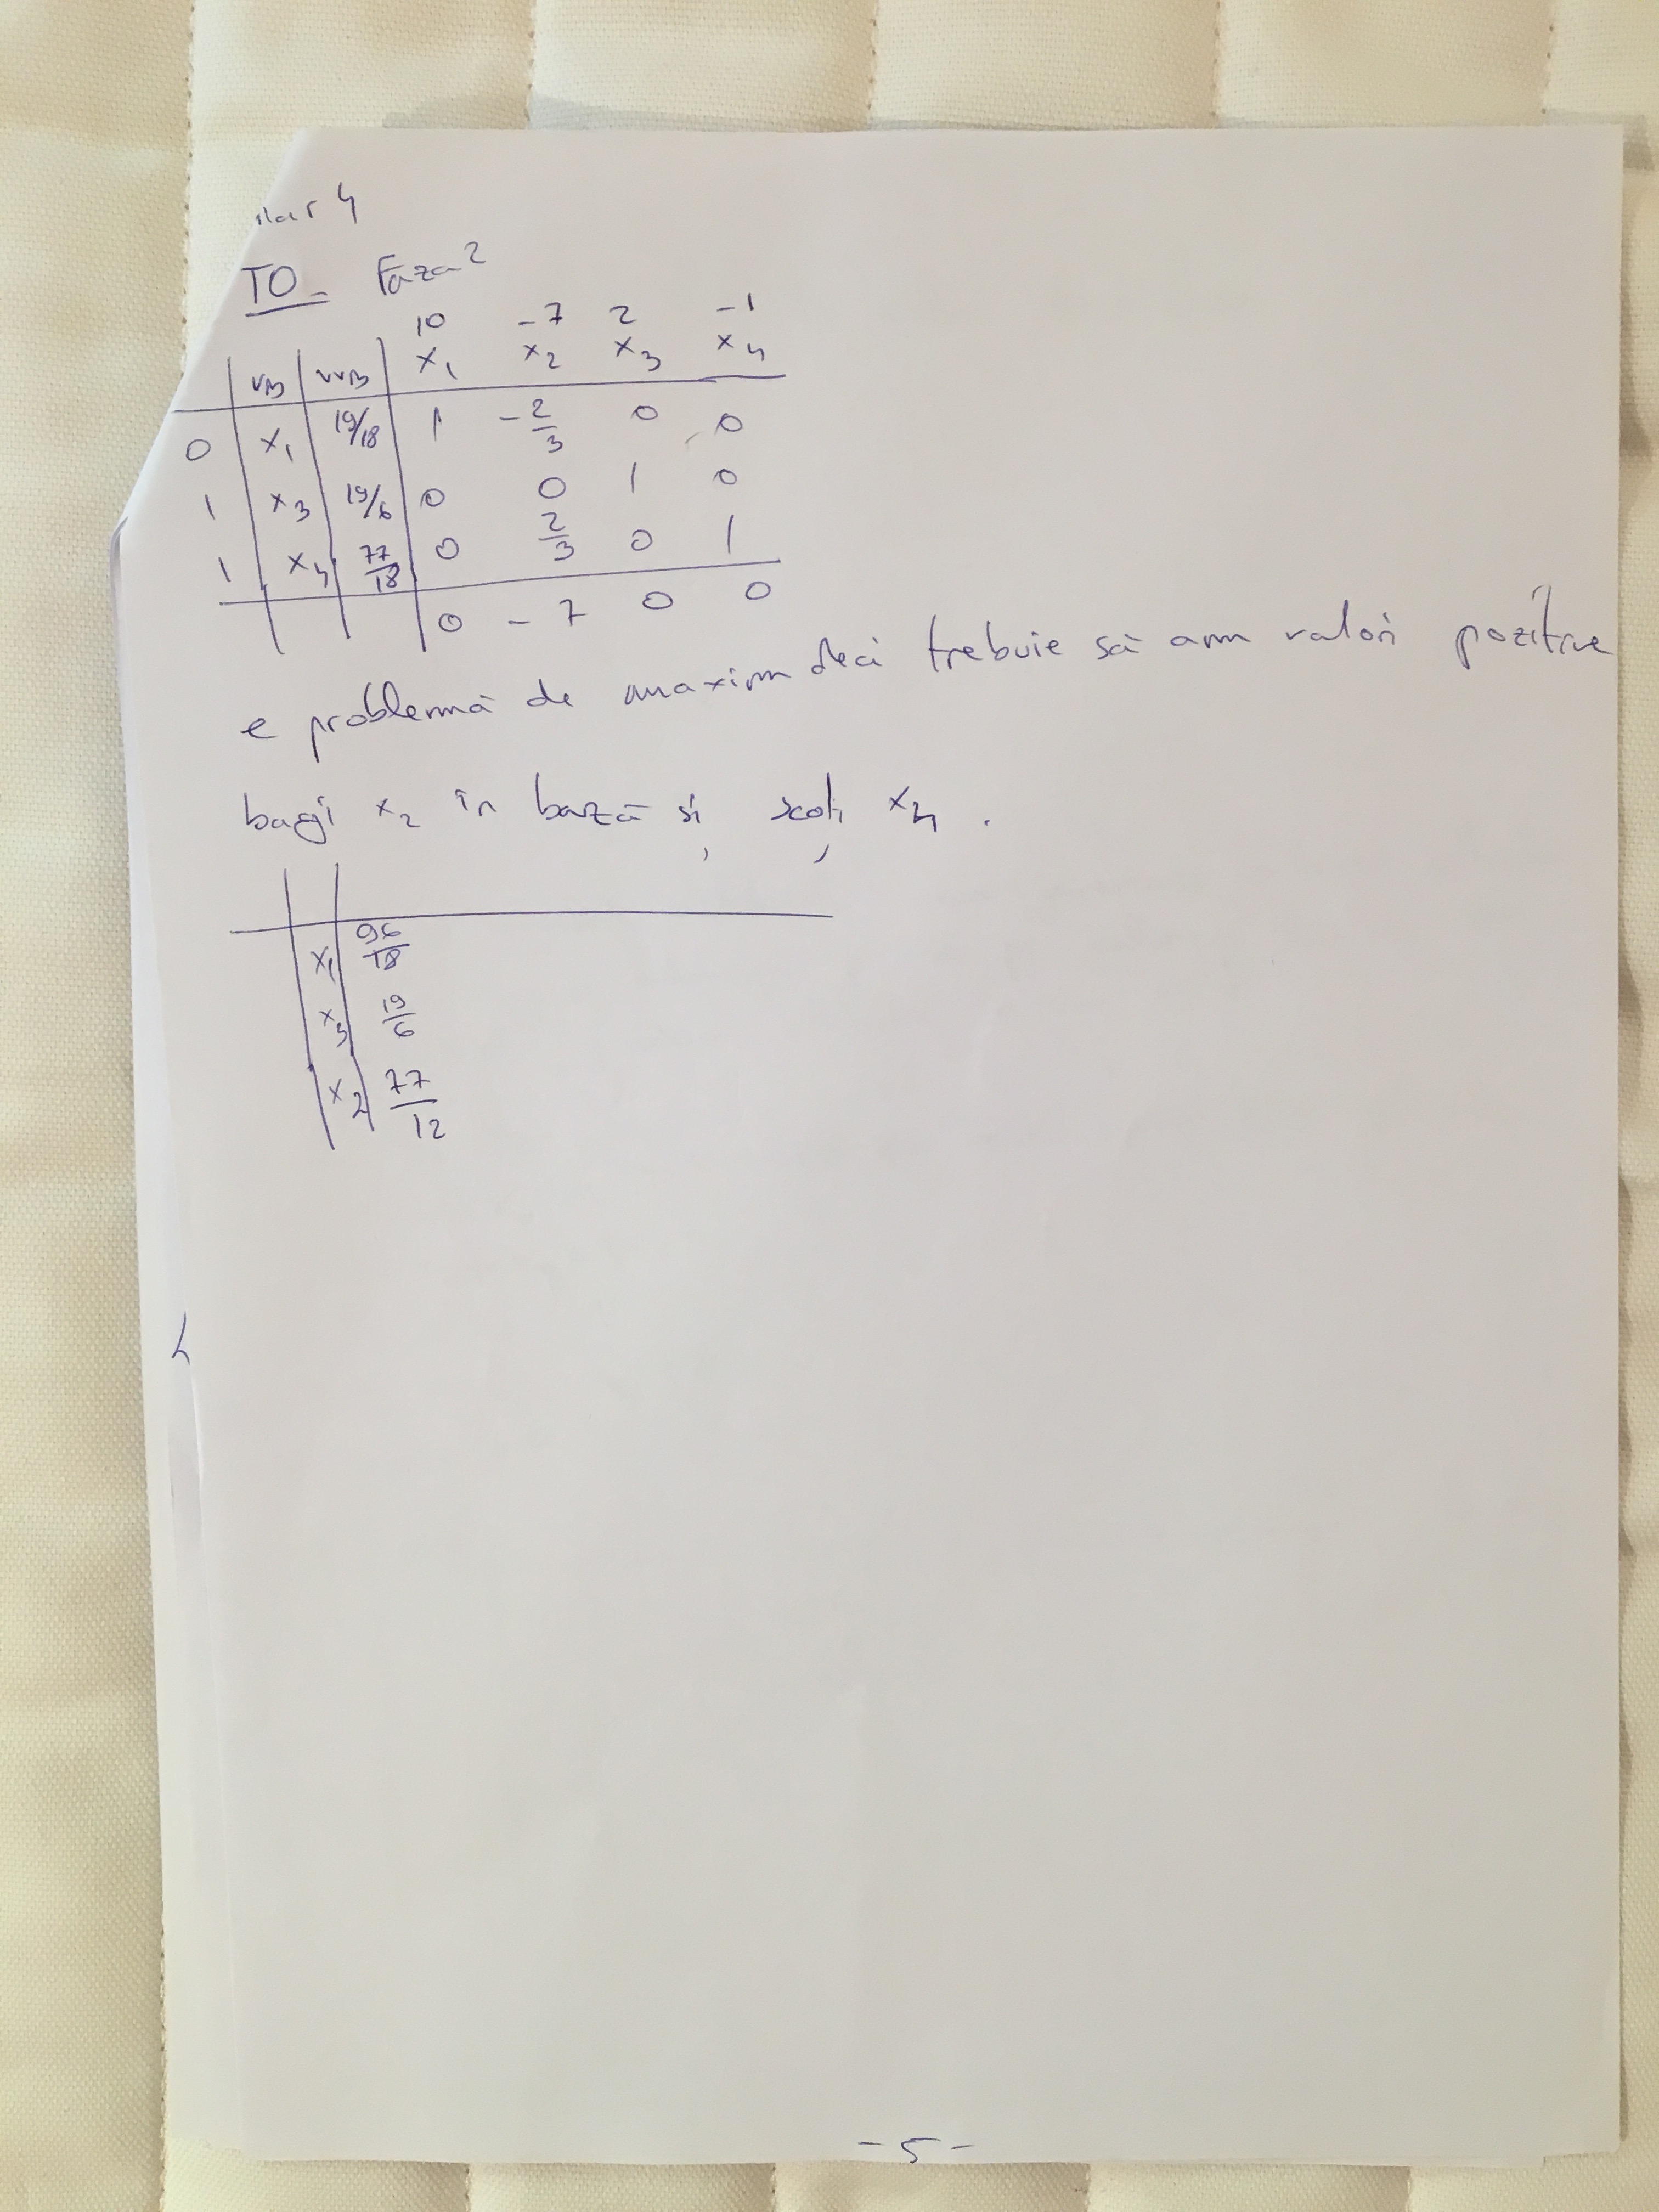 nar 4
TO - Faza 2
10 -7 2 -1
VB VVB x1 x2 x3 x4
0 x1 19/18 1 -2/3 0 0
1 x3 19/6 0 0 1 0
1 x4 77/18 0 2/3 0 1
0 -7 0 0
e problemă de maxim deci trebuie să am valori pozitive
bagi x2 în bază și scoți x4.
x1 96/18
x3 19/6
x2 77/12
- 5 -